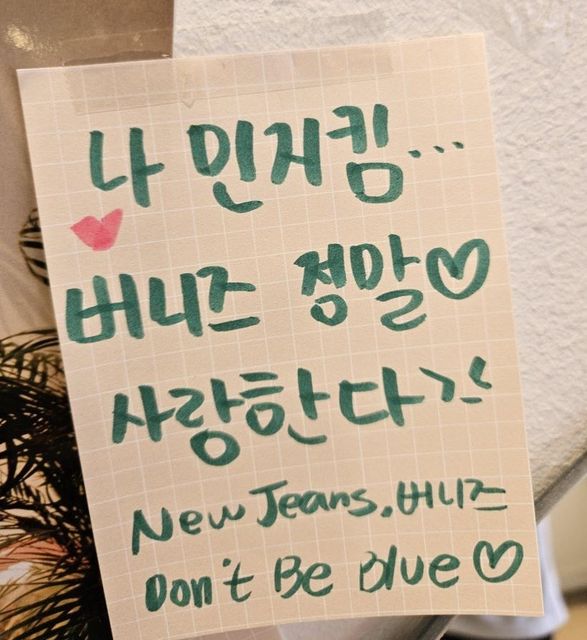 나 민지킴...
버니즈 정말♡
사랑한다ㄱㄴ
New Jeans. 버니즈
Don't Be Blue♡